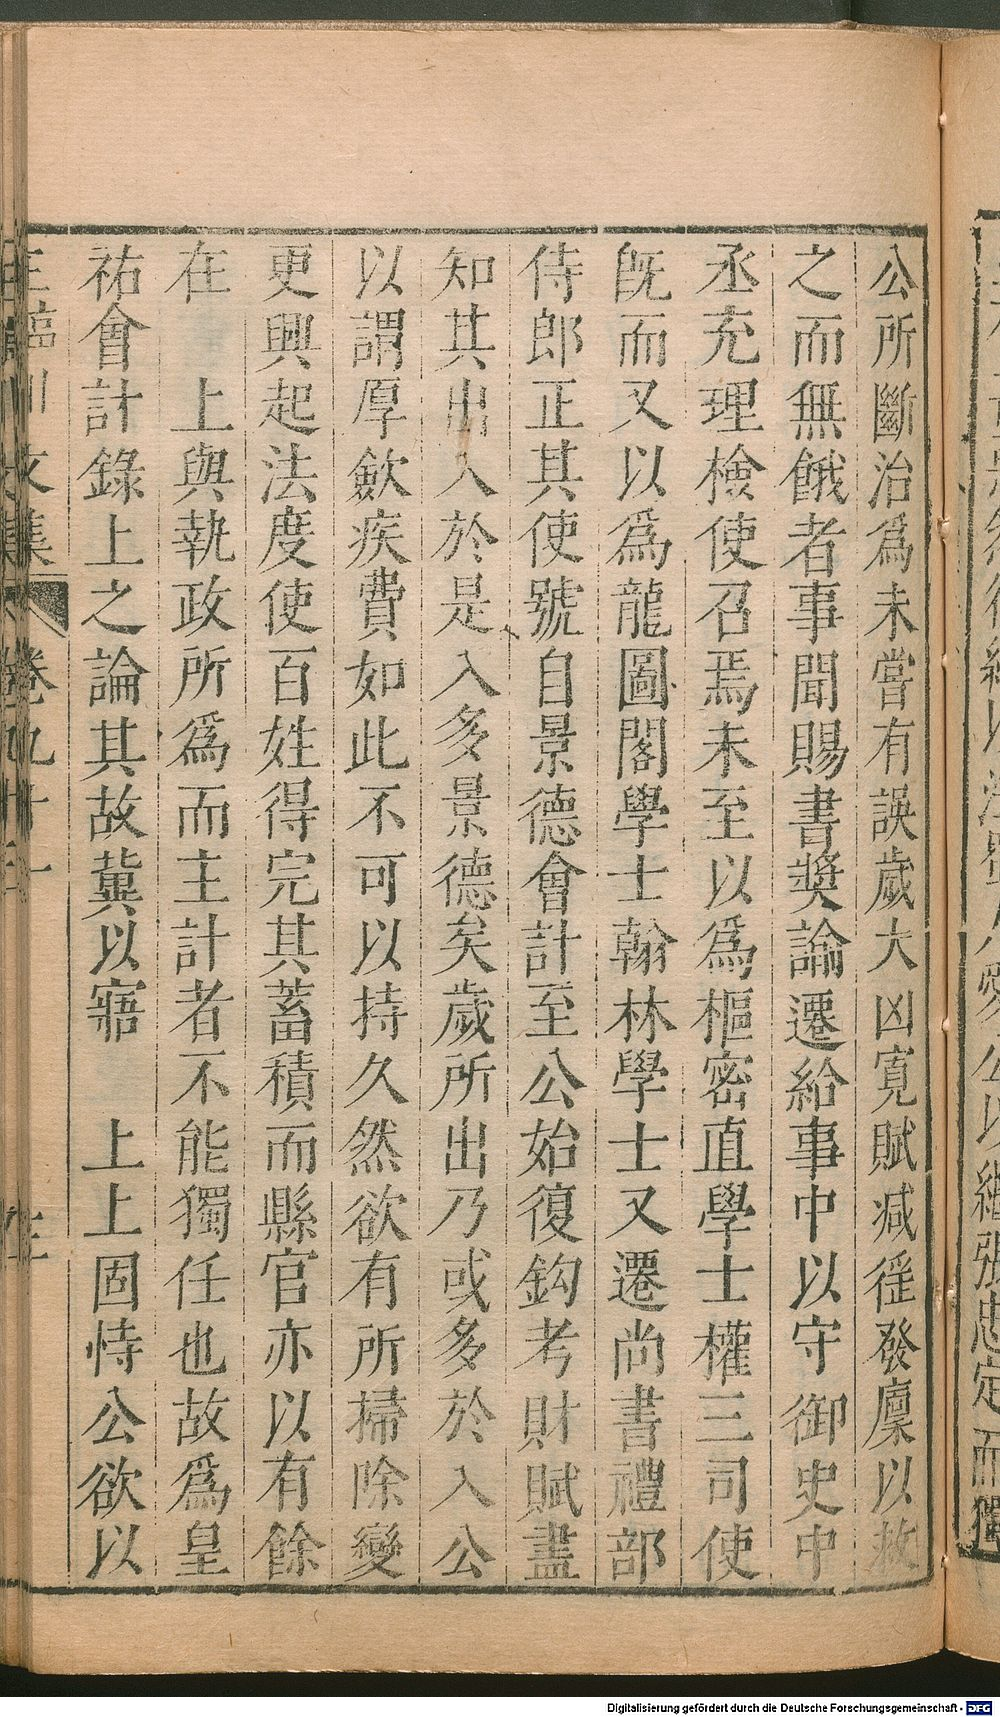 公所斷治爲未嘗有誤歲大凶寬賦減徭發廩以救
之而無餓者事聞賜書獎諭遷給事中以守御史中
丞充理檢使召焉未至以爲樞密直學士權三司使
旣而又以爲龍圖閣學士翰林學士又遷尚書禮部
侍郎正其使號自景德會計至公始復鈎考財賦盡
知其出入於是入多景德矣歲所出乃或多於入公
以謂厚歛疾費如此不可以持久然欲有所掃除變
更興起法度使百姓得完其蓄積而縣官亦以有餘
在　上與執政所爲而主計者不能獨任也故爲皇
祐會計錄上之論其故冀以寤　上上固恃公欲以
卷九十一
Digitalisierung gefördert durch die Deutsche Forschungsgemeinschaft - DFG